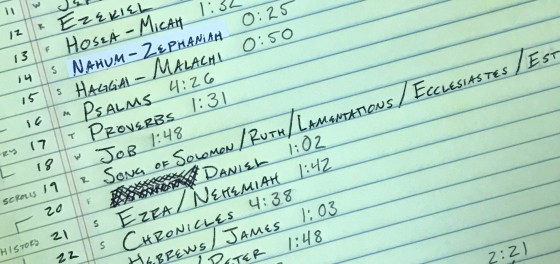 11 W
12 R EZEKIEL
13 F HOSEA - MICAH 0:25
14 S NAHUM - ZEPHANIAH 0:50
15 S HAGGAI - MALACHI
16 M PSALMS 4:26
17 T PROVERBS 1:31
18 W JOB 1:48
19 R SONG OF SOLOMON / RUTH / LAMENTATIONS / ECCLESIASTES / EST
20 DANIEL 1:02
21 S EZRA / NEHEMIAH 1:42
22 S CHRONICLES 4:38
HEBREWS / JAMES 1:03
PETER 1:48
2:21